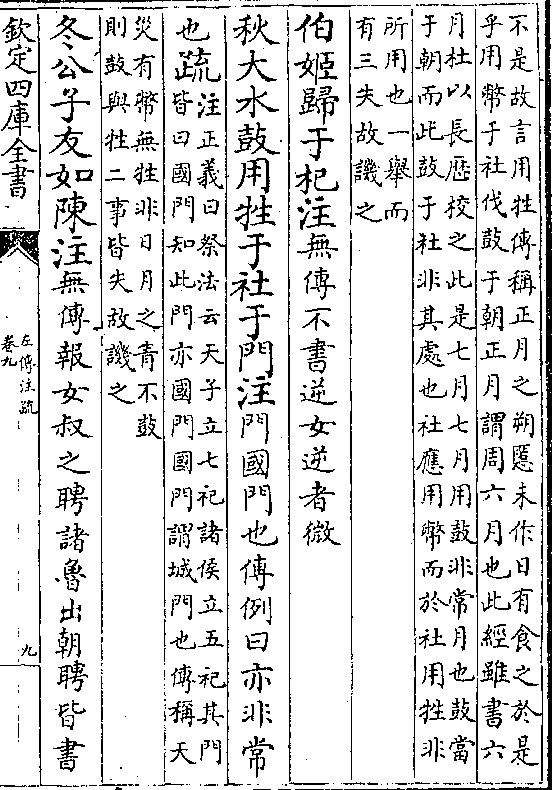 不是故言用牲傳稱正月之朔慝未作日有食之於是
乎用幣于社伐鼓于朝正月謂周六月也此經雖書六
月杜以長歴校之此是七月七月用鼓非常月也鼓當
于朝而此鼓于社非其處也社應用幣而於社用牲非
所用也一舉而
有三失故譏之
伯姬歸于杞注無傳不書逆女逆者微
秋大水鼓用牲于社于門注門國門也傳例曰亦非常
也疏注正義曰祭法云天子立七祀諸侯立五祀其門
皆曰國門知此門亦國門國門謂城門也傳稱天
災有幣無牲非日月之眚不鼓
則鼓與牲二事皆失故譏之
冬公子友如陳注無傳報女叔之聘諸魯出朝聘皆書
欽定四庫全書
左傳注疏
卷九
九